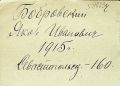 Бобровский
Яков Иванович
1915 г.
Севастополь - 160